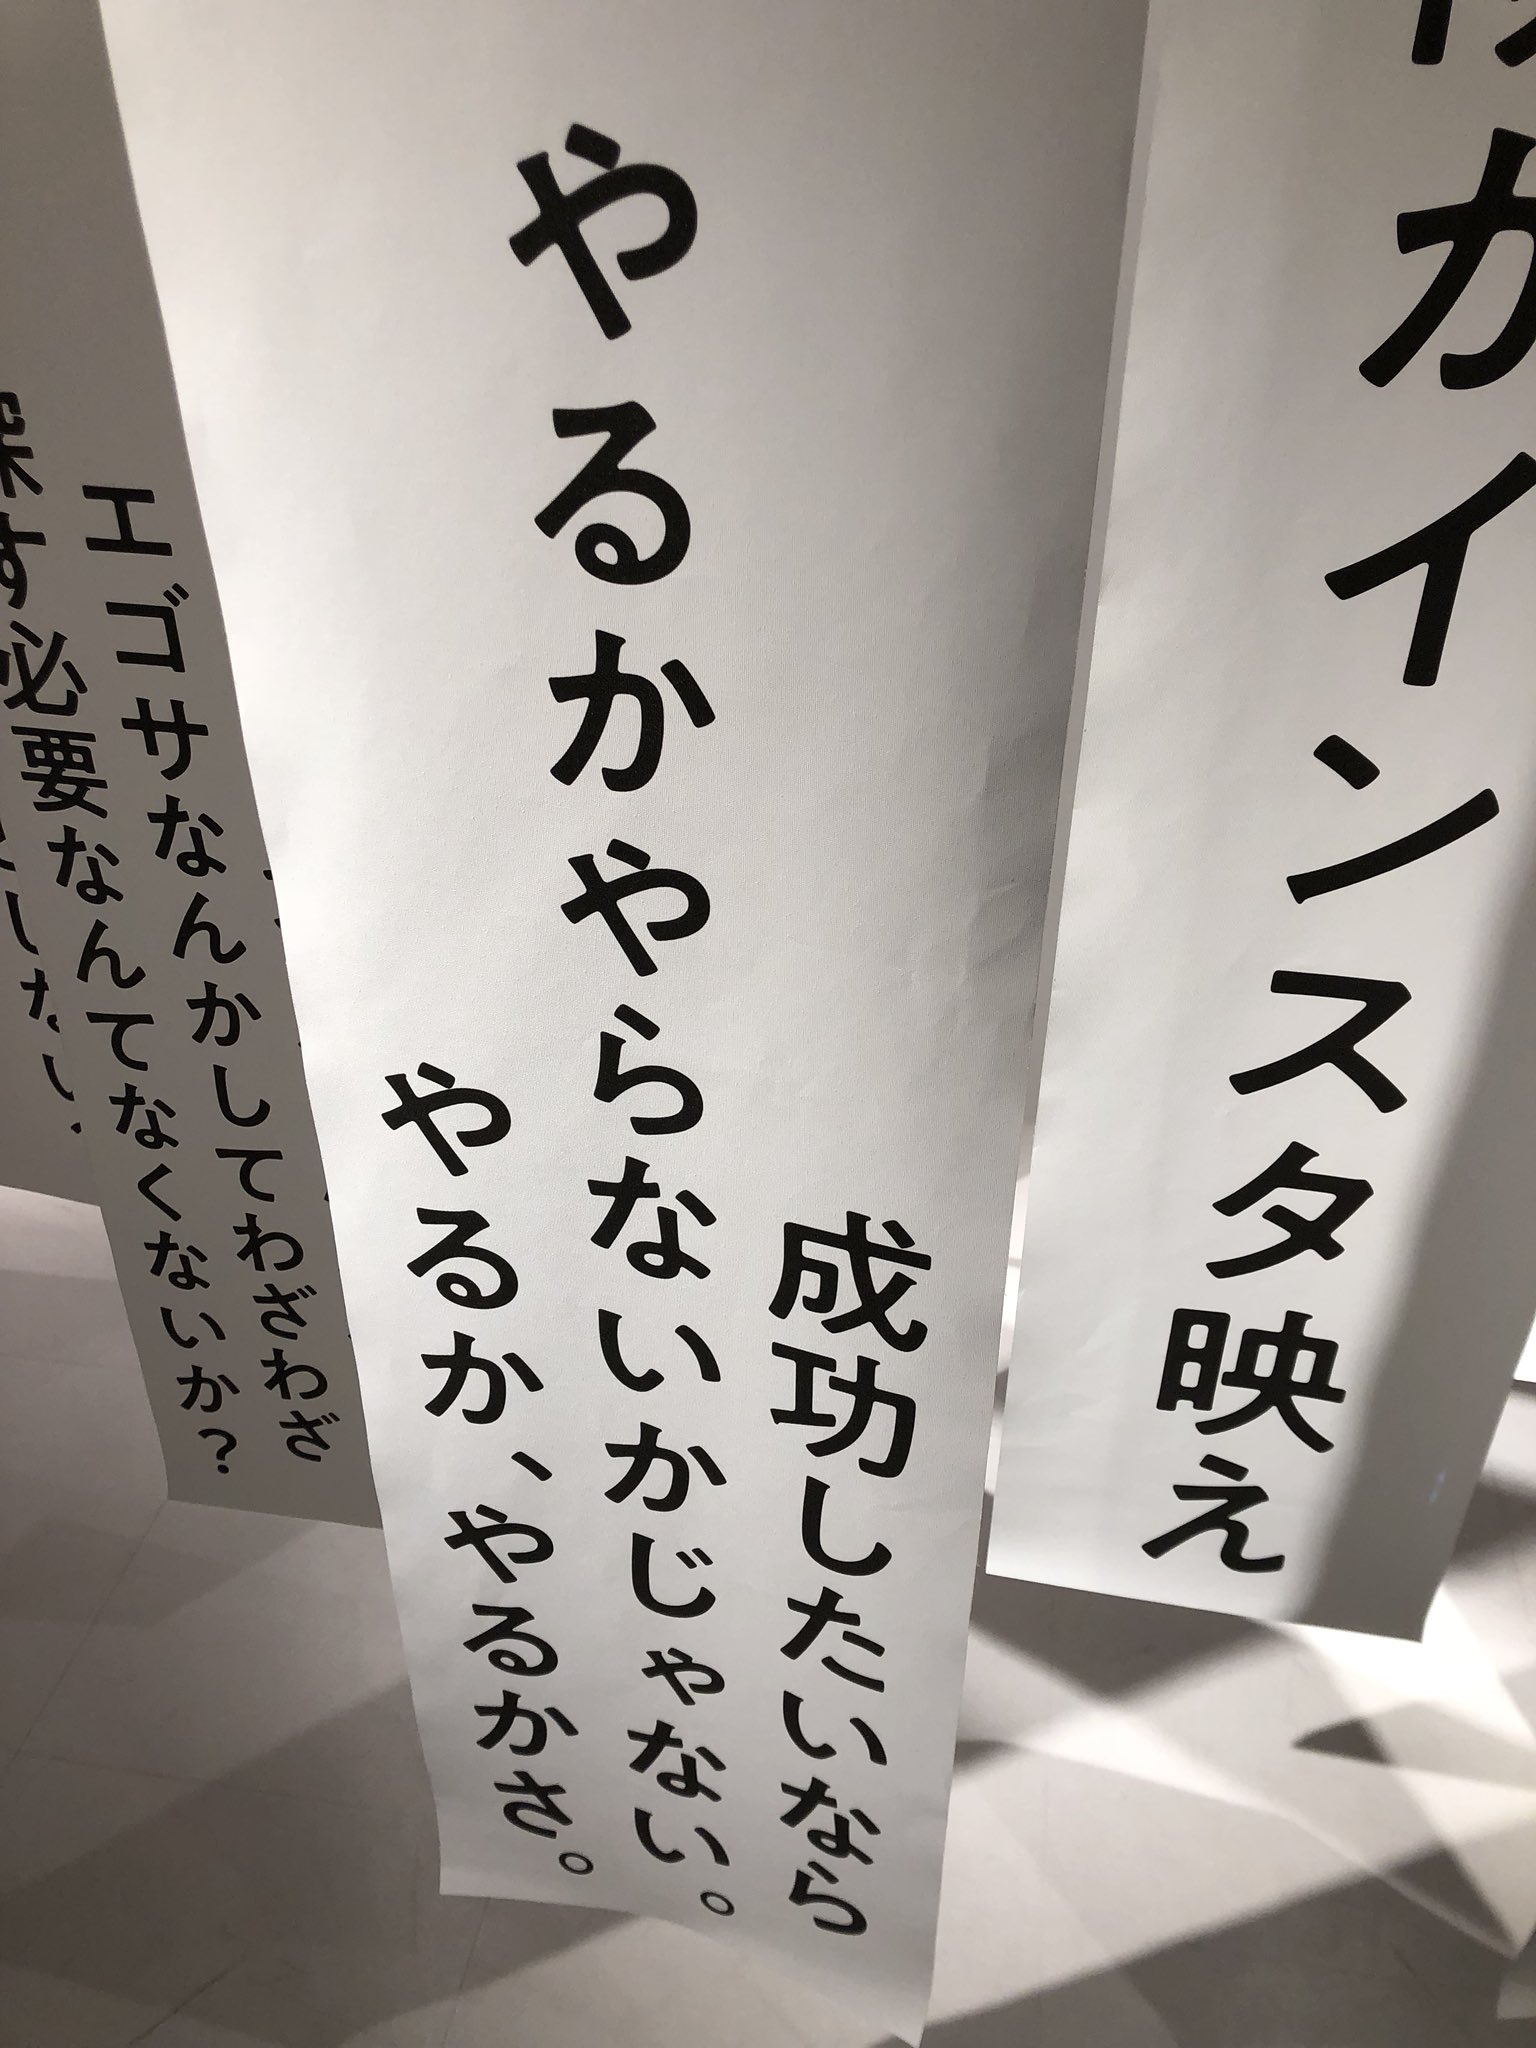 がインスタ映え
成功したいなら
やるかやらないかじゃない。
やるか、やるかさ。
エゴサなんかしてわざわざ
探す必要なんてなくないか?